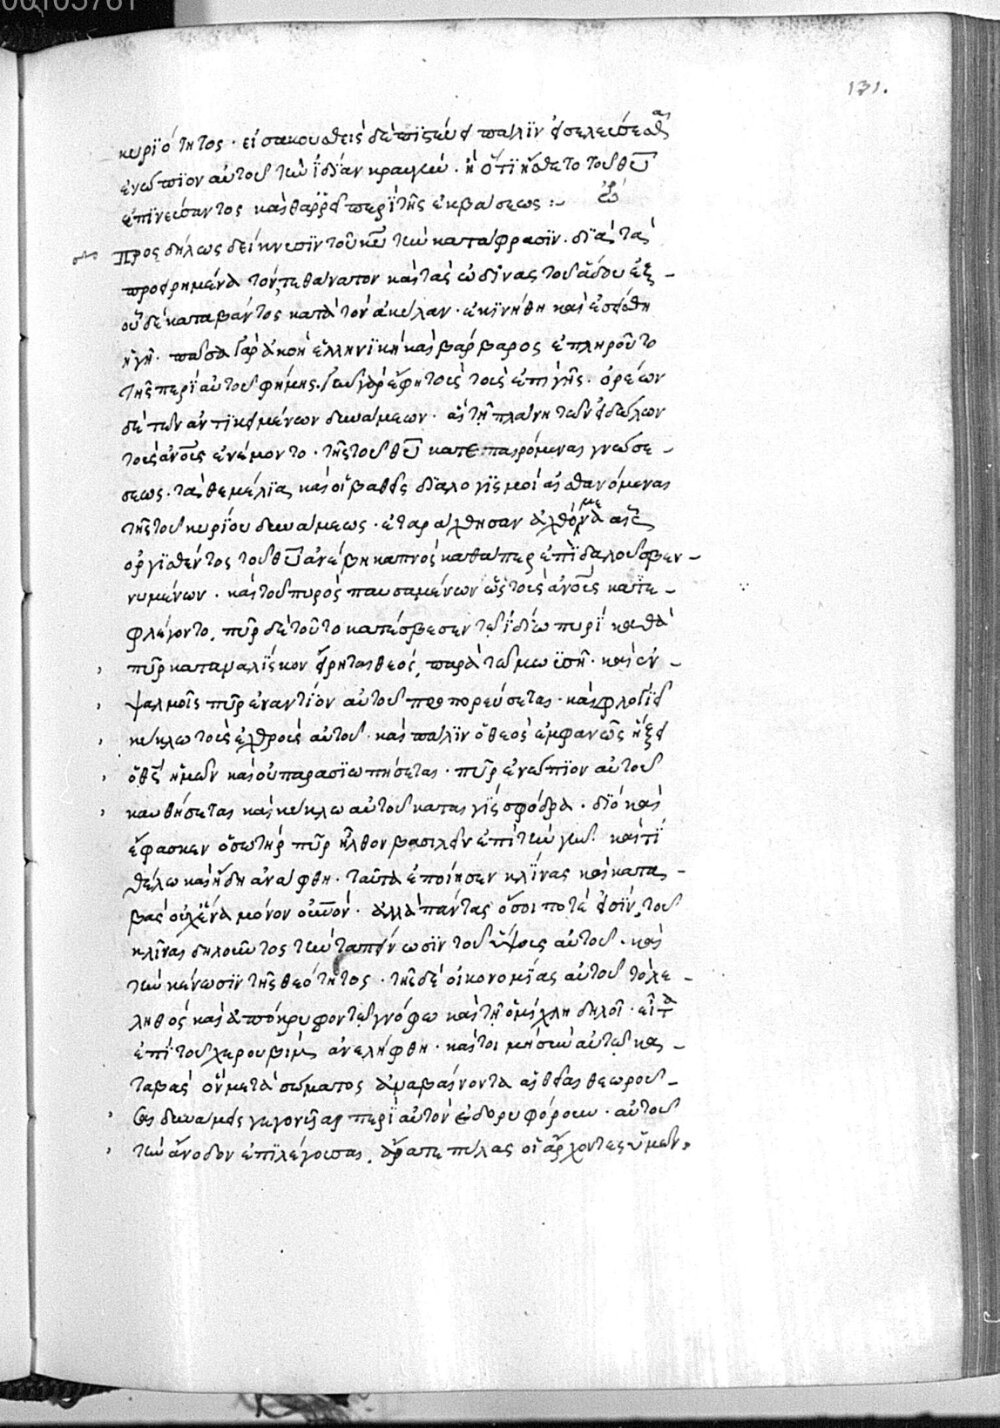 00105761
131.
κυριότητος · εἰσακουσθεὶς δὲ πιστεύει πάλιν εἰσελεύσεσθαι
ἐνώπιον αὐτοῦ τὴν ἰδίαν κραυγήν · ἢ ὅτι ᾔσθετο τοῦ θῦ
ἐπινεύσαντος καὶ θαρρεῖ περὶ τῆς ἐκβάσεως :-
προδήλως δείκνυσιν τοῦ κῦ τὴν κατάφρασιν · διὰ τὰς
προειρημένα τόν τε θάνατον καὶ τὰς ὠδῖνας τοῦ ἅδου ἐξ -
οὗ δὲ καταβάντος κατὰ τὸν ἀκύλαν · ἐκινήθη καὶ ἐσείσθη
ἡ γῆ · πᾶσα γὰρ ἀκοὴ ἑλληνικὴ καὶ βάρβαρος ἐπληροῦτο
τῆς περὶ αὐτοῦ φήμης · γῆν γὰρ ἔφη τοὺς τοῖς ἐπιγῆς · ὀρέων
δὲ τῶν ἀντικειμένων δυνάμεων · αἳ τῇ πλάνῃ τῶν εἰδώλων
τοὺς ἀνοῦς ἐνέμοντο · τῆς τοῦ θῦ κατεπαιρόμεναι γνώσε -
σεως · τὰ θεμέλια, καὶ οἱ βαθεῖς διαλογισμοὶ αἰσθανόμεναι
τῆς τοῦ κυρίου δυνάμεως · ἐταράχθησαν
ὀργισθέντος τοῦ θῦ ἀνέβη καπνὸς καθάπερ ἐπὶ δαλοῦ σβεν -
νυμένων · καὶ τοῦ πυρὸς παυσαμένων ὡς τοὺς ἀνοῦς κατε -
φλέγοντο, πῦρ δὲ τοῦτο κατέσβεσεν τῷ ἰδίῳ πυρί καθὰ
πῦρ καταναλίσκον εἴρηται θεός, παρὰ τῷ μωϋσῇ · καὶ ἐν -
ψαλμοῖς πῦρ ἐναντίον αὐτοῦ προπορεύσεται · καὶ φλογιεῖ
κύκλω τοὺς ἐχθροὺς αὐτοῦ · καὶ πάλιν ὁ θεὸς ἐμφανῶς ἥξει
ὁ θς ἡμῶν καὶ οὐ παρασιωπήσεται · πῦρ ἐνώπιον αὐτοῦ
καυθήσεται καὶ κύκλω αὐτοῦ καταιγὶς σφόδρα · διὸ καὶ
ἔφασκεν ὁ σωτὴρ πῦρ ἦλθον βαλεῖν ἐπὶ τὴν γῆν καὶ τί
θέλω καὶ ἤδη ἀνάφθη · ταῦτα ἐποίησεν κλίνας καὶ καταβὰς -
οὐχ ἕνα μόνον οὐνόν · ἀλλὰ πάντας ὅσοι ποτέ εἰσιν, τοῦ
κλῖναι δηλοῦντος τὴν ταπείνωσιν τοῦ ὕψους αὐτοῦ · καὶ
τὴν κένωσιν τῆς θεότητος · τῆς δὲ οἰκονομίας αὐτοῦ τὸ λε -
ληθὸς καὶ ἀπόκρυφον τῷ γνόφω καὶ τῇ ὁμίχλῃ δηλοῖ · εἶτα
ἐπὶ τοῦ χερουβὶμ ἀνελήφθη · καί τοι μὴ σὺν αὐτῷ κα -
ταβὰς ὃν μετὰ σώματος ἀναβαίνοντα αἱ θεῖαι θεωροῦ -
σαι δυνάμεις γεγονυῖαι περὶ αὐτὸν ἐδορυφόρουν · αὐτοῦ
τὴν ἄνοδον ἐπιλέγουσαι, ἄρατε πύλας οἱ ἄρχοντες ὑμῶν,